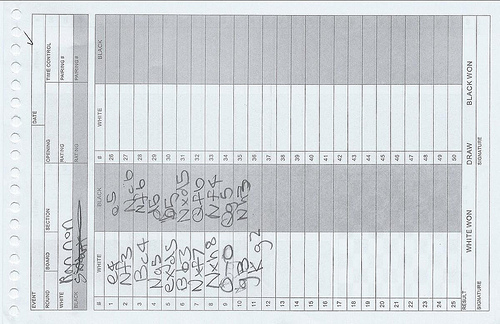 EVENT DATE
ROUND BOARD SECTION OPENING TIME CONTROL
WHITE RATING PAIRING #
BLACK RATING PAIRING #
# WHITE BLACK # WHITE BLACK
1 e4 e5 26
2 Nf3 Nc6 27
3 Bc4 Nf6 28
4 Ng5 d5 29
5 exd5 30
6 Nxd5 31
7 Nxf7 Qf6 32
8 Nxh8 33
9 0-0 34
10 g3 Nh3 35
11 36
12 37
13 38
14 39
15 40
16 41
17 42
18 43
19 44
20 45
21 46
22 47
23 48
24 49
25 50
RESULT WHITE WON DRAW BLACK WON
SIGNATURE SIGNATURE